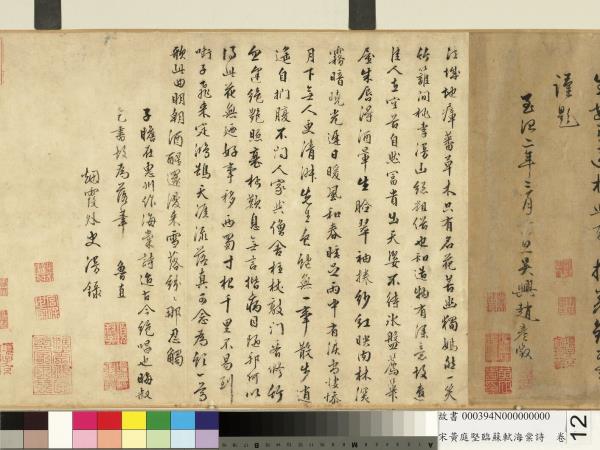 謹題
至治二年三月
日吳興趙
江城地瘴蕃草木只有名花苦幽獨嫣然一笑
竹籬間桃李漫山總粗俗也知造物有深意故遣
佳人在空谷自然富貴出天姿不待冰盤薦華
屋朱唇得酒暈生臉翠袖捲紗紅映肉林深
霧暗曉光遲日暖風和春睡足雨中有淚亦悽慘
月下無人更清淑先生食飽無一事散步逍
遙自捫腹不問人家與僧舍拄杖敲門看修竹
忽逢絕艷照衰朽歎息無言揩病目陋邦何以
得此花無迺好事移西蜀寸根千里不易到
啣子飛來定鴻鵠天涯流落真可念為飲一尊
歌此曲明朝酒醒還復來雪落紛紛那忍觸
子瞻在惠州作海棠詩迨古今絕唱也晦叔
乞書故為落筆 魯直
烟霞外史謾錄
故書 000394N000000000
宋黃庭堅臨蘇軾海棠詩 卷
12